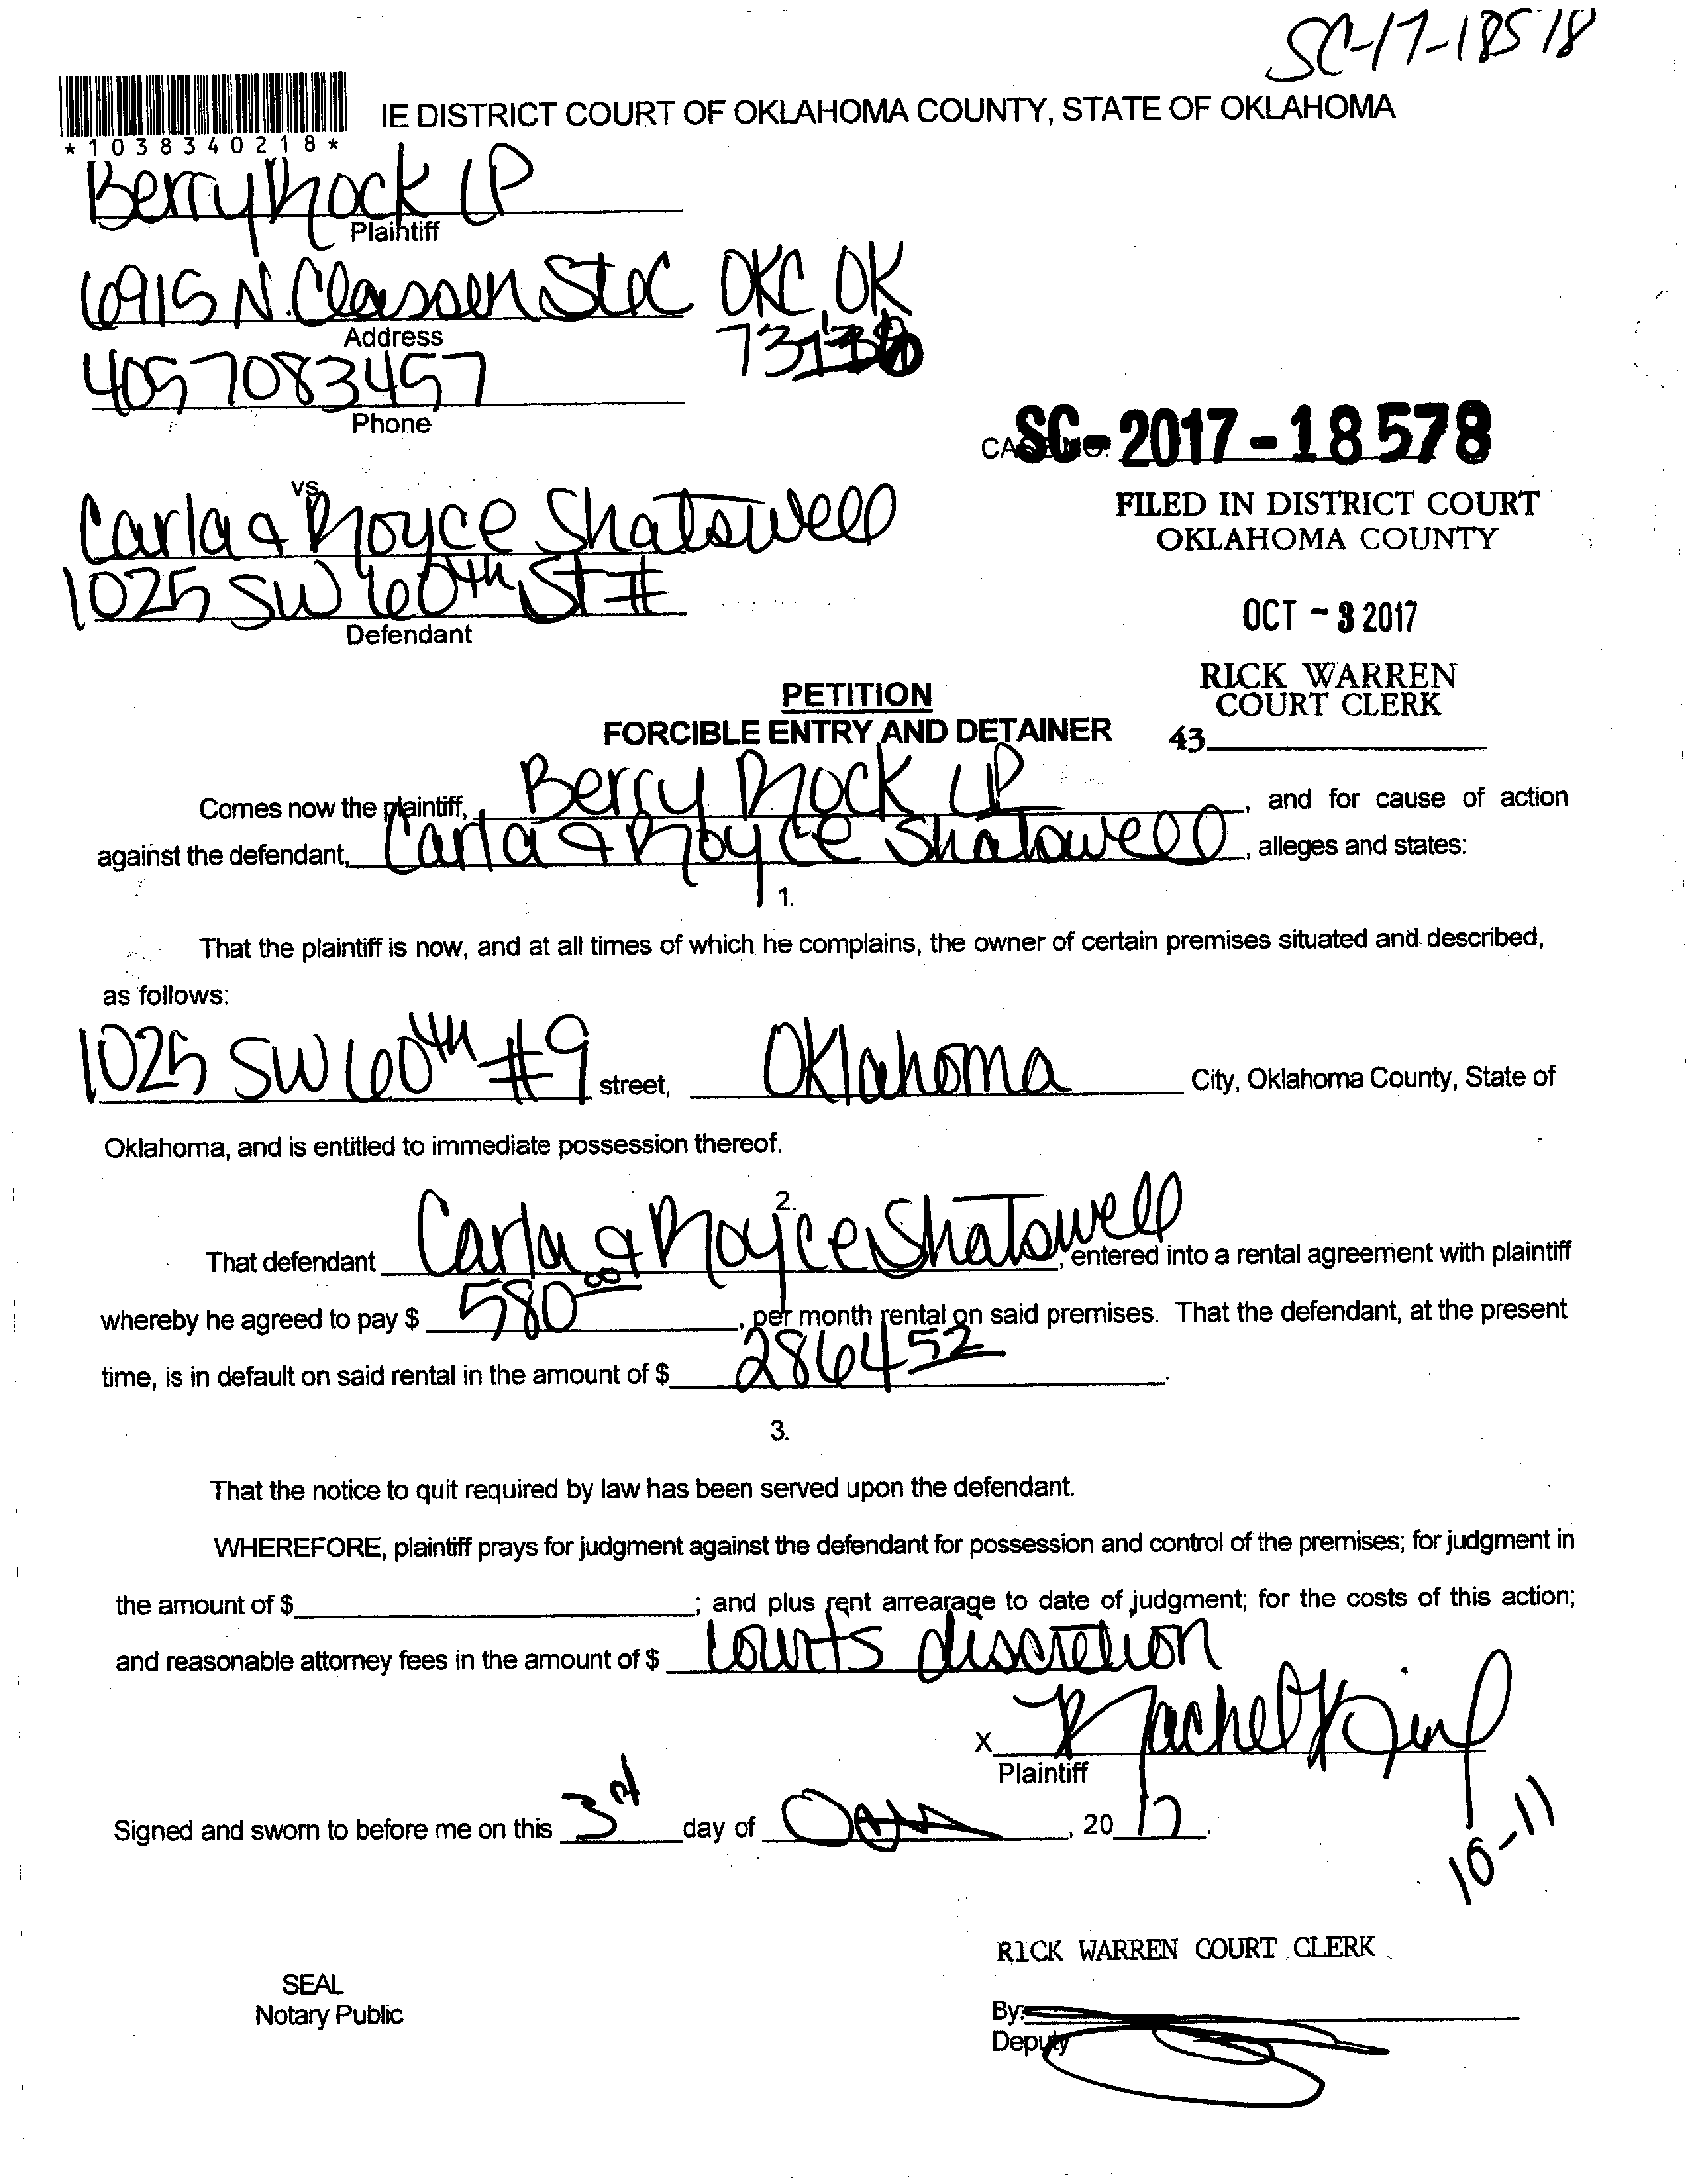 SC-17-18578
IE DISTRICT COURT OF OKLAHOMA COUNTY, STATE OF OKLAHOMA
*1038340218*
Berry Rock LP
Plaintiff
6915 N. Classen Ste C OKC, OK
Address
73116
4057083457
Phone
SC-2017-18578
FILED IN DISTRICT COURT
OKLAHOMA COUNTY
vs.
Carla & Royce Shatswell
1025 SW 60th St #
Defendant
OCT - 3 2017
RICK WARREN
COURT CLERK
43
PETITION
FORCIBLE ENTRY AND DETAINER
Comes now the plaintiff, Berry Rock LP, and for cause of action
against the defendant, Carla & Royce Shatswell, alleges and states:
1.
That the plaintiff is now, and at all times of which he complains, the owner of certain premises situated and described,
as follows:
1025 SW 60th #9 street, Oklahoma City, Oklahoma County, State of
Oklahoma, and is entitled to immediate possession thereof.
2.
That defendant Carla & Royce Shatswell, entered into a rental agreement with plaintiff
whereby he agreed to pay $ 580 00, per month rental on said premises. That the defendant, at the present
time, is in default on said rental in the amount of $ 2864 52.
3.
That the notice to quit required by law has been served upon the defendant.
WHEREFORE, plaintiff prays for judgment against the defendant for possession and control of the premises; for judgment in
the amount of $ ; and plus rent arrearage to date of judgment; for the costs of this action;
and reasonable attorney fees in the amount of $ Courts discretion
X Rachel King
Plaintiff
Signed and sworn to before me on this 3rd day of , 20 17.
10-11
RICK WARREN COURT CLERK
SEAL
Notary Public
By:
Deputy